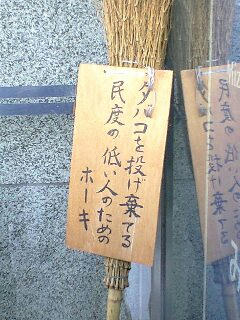 タバコを投げ棄てる
民度の低い人のための
ホーキ